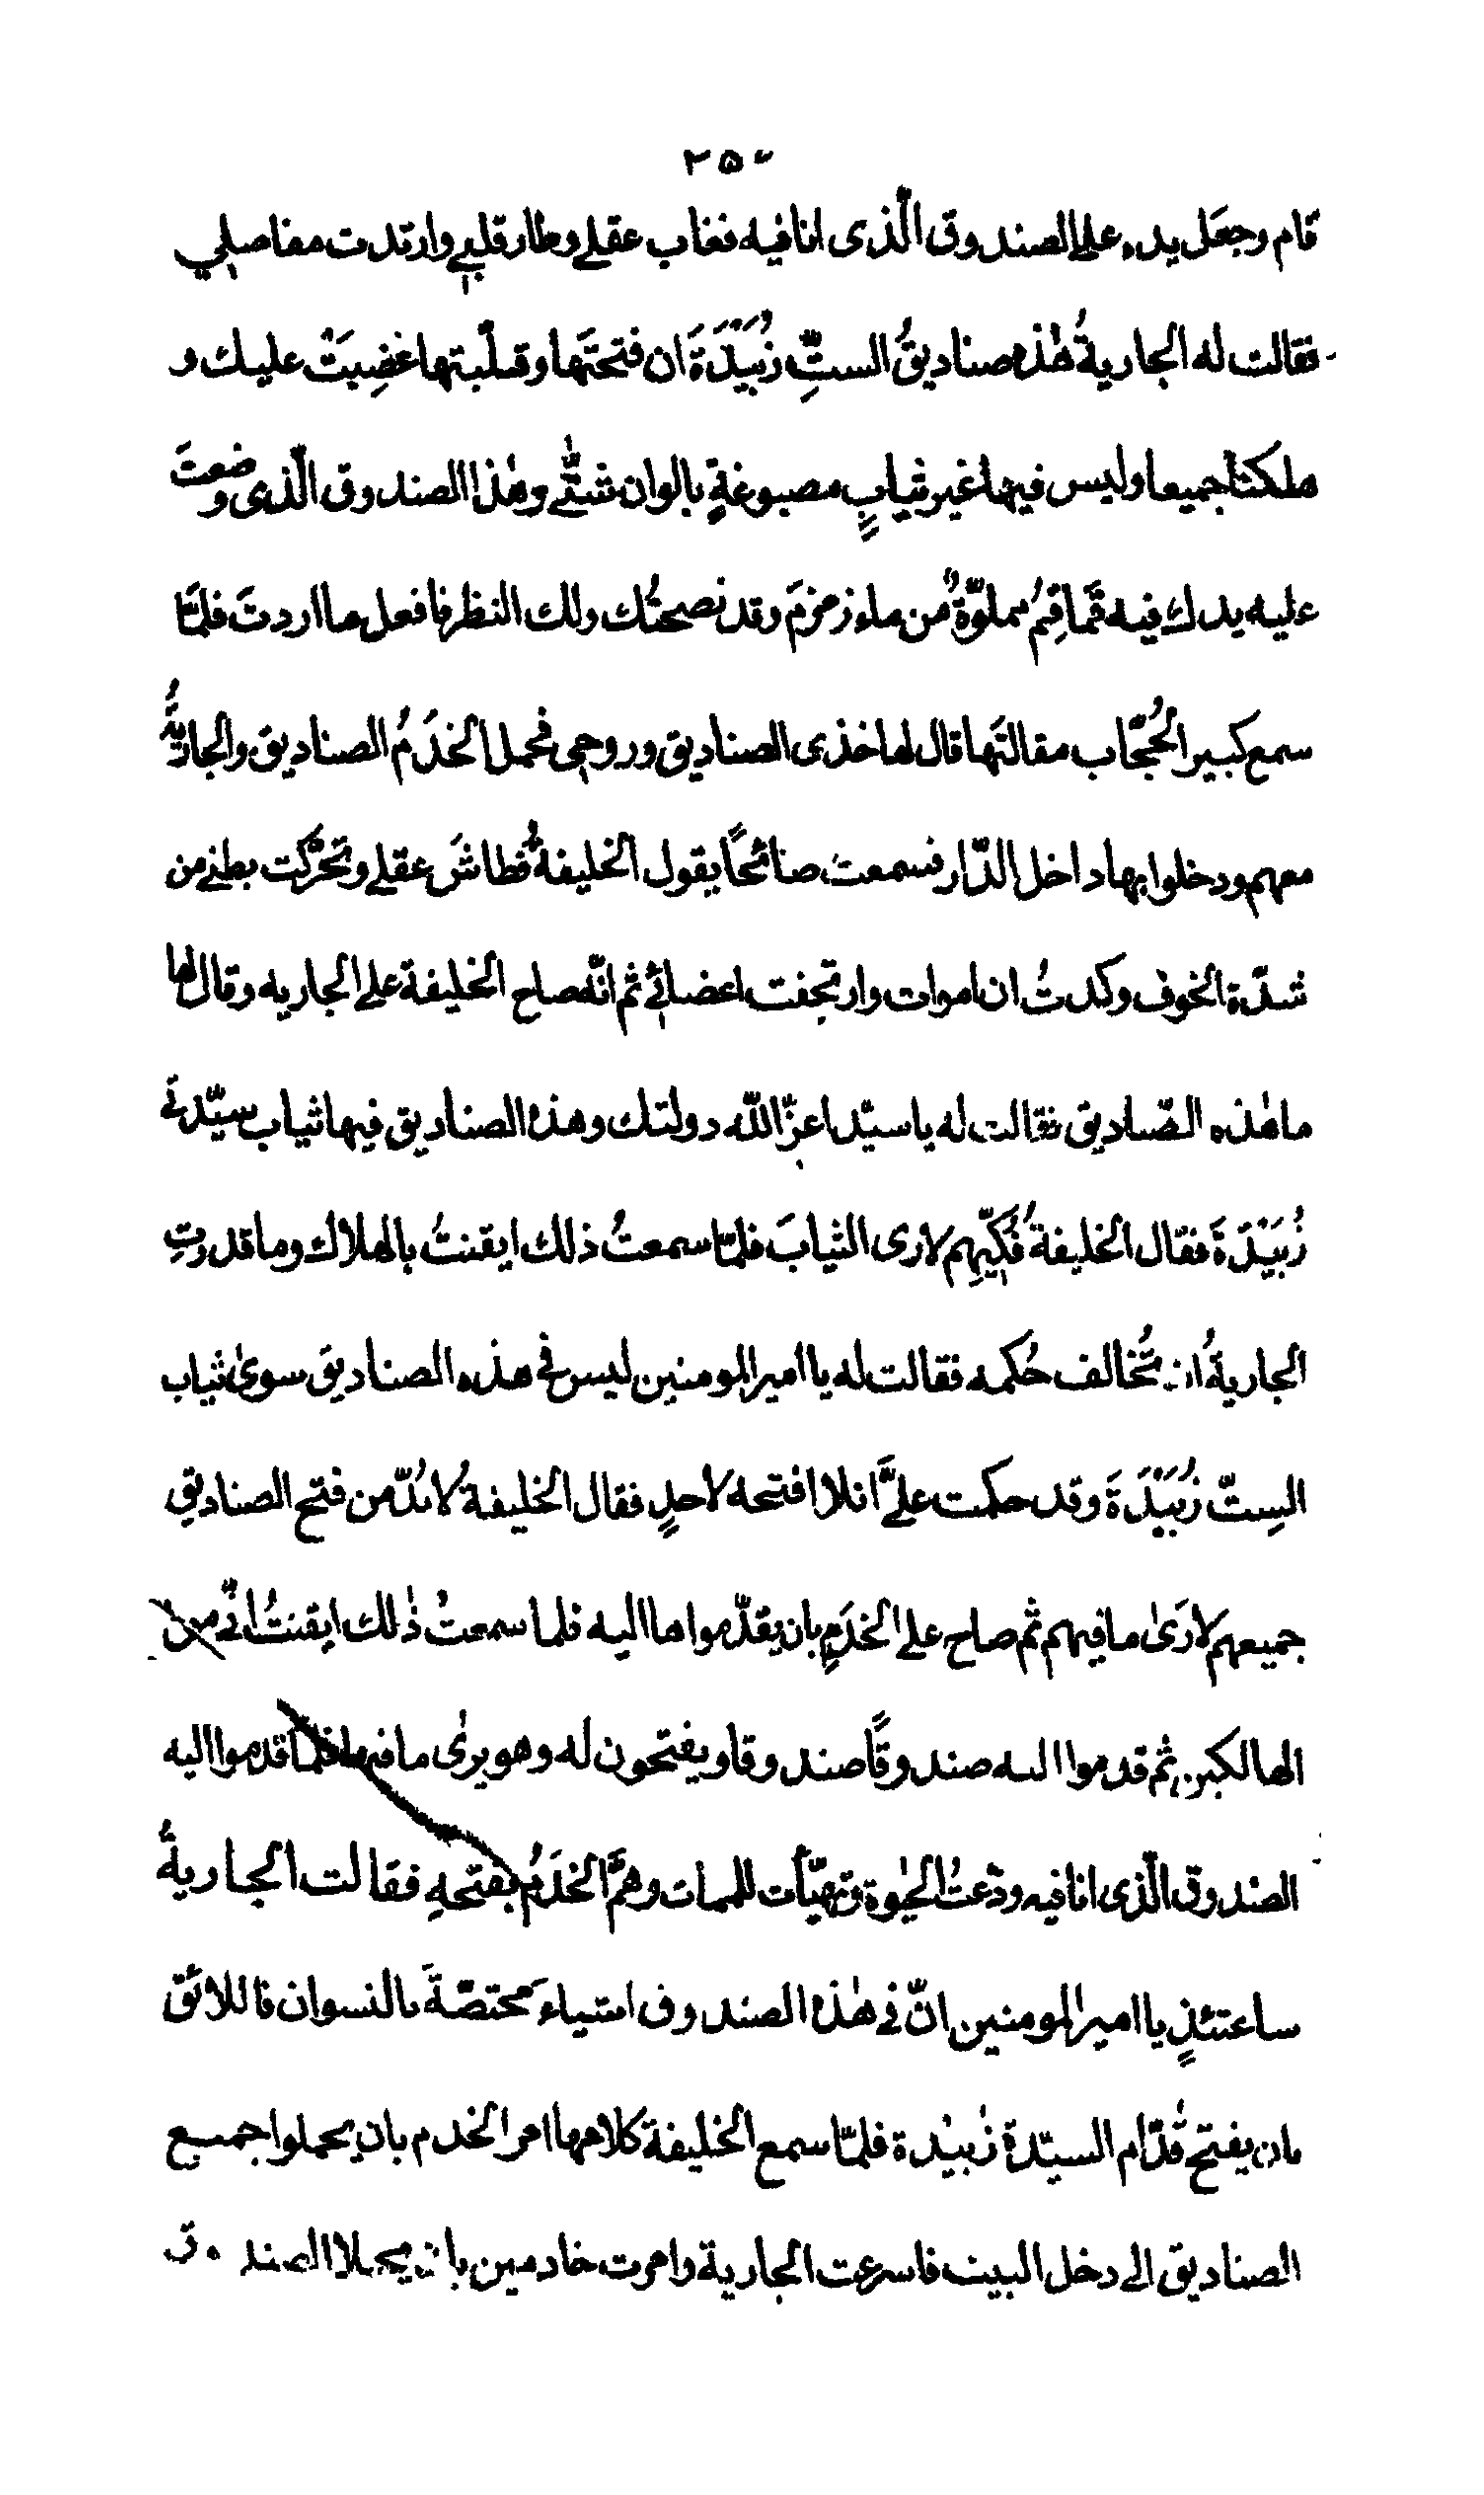 ٢٥٢
قام وجعَل يده علی الصندوق الّذی انا فیه فغاب عقلے وطار قلبے وارتدت مفاصلي
فقالت له الجاریةُ هٰذه صنادیقُ الستِّ زُبَیْدَةَ ان فتحتَها وقلّبتها غضِبَتْ علیك و
هلكنا جمیعا ولیس فیها غیر ثیابٍ مصبوغةٍ بالوان شتّٰے وهٰذا الصندوق الّذی وضعتَ
علیه یدك فیه قَماقِمُ مملوّةٌ من ماء زمزمَ وقد نصحتُك ولك النظر فافعل ما اردتَ فلمّا
سمع كبیر الحُجّاب مقالتَها قال لها خذی الصنادیق وروحی فحمل الخَدَمُ الصنادیقَ والجاریةُ
معهم ودخلوا بها داخل الدّار فسمعت صائحًا یقول الخلیفةُ فطاشَ عقلے وتحرّكت بطنے من
شدّة الخوف وكدتُ ان اموات وارتجفت اعضائے ثم انّه صاح الخلیفة علے الجاریه وقال لها
ما هٰذه الصّنادیق فقالت له یا سیّد اعزّ اللّٰه دولتك وهذه الصنادیق فیها ثیاب سیّدة
زُبَیْدَةَ فقال الخلیفةُ فُكّیْهِم لاری الثیابَ فلمّا سمعتُ ذلك ایقنتُ بالهلاك وما قدرتِ
الجاریةُ ان تُخالف حُكمه فقالت له یا امیر المومنین لیس فی هذه الصنادیقَ سویٰ ثیاب
السِتّ زُبَیْدَةَ وقد حكمت علیَّ ان لا افتحه لاحدٍ فقال الخلیفةُ لا بُدّ من فتح الصنادیق
جمیعهم لاَریٰ ما فیهم ثم صاح علے الخَدَمِ بان یقدّموا ها الیه فلما سمعتُ ذٰلك ایقنتُ انّے من
الهالكین ثم قدموا الیه صندوقًا صندوقا ویفتحون له وهو یریٰ ما فیها فلمّا قدموا الیه
الصندوق الّذی انا فیه ودّعتُ الحیٰوة وتهیّأت للممات وهَمَّ الخَدَمُ بفتحهِ فقالت الجاریةُ
ساعتئذٍ یا امیر المومنین انّ فے هٰذه الصندوق اشیاء مختصّةَ بالنسوان فاللائق
بان یفتح قُدّام السیّدة زُبیْدة فلمّا سمع الخلیفة كلامها امر الخدم بان یحملوا جمیع
الصنادیق الی دخل البیت فاسرعت الجاریة وامرت خادمین بان یحملا الصندوق